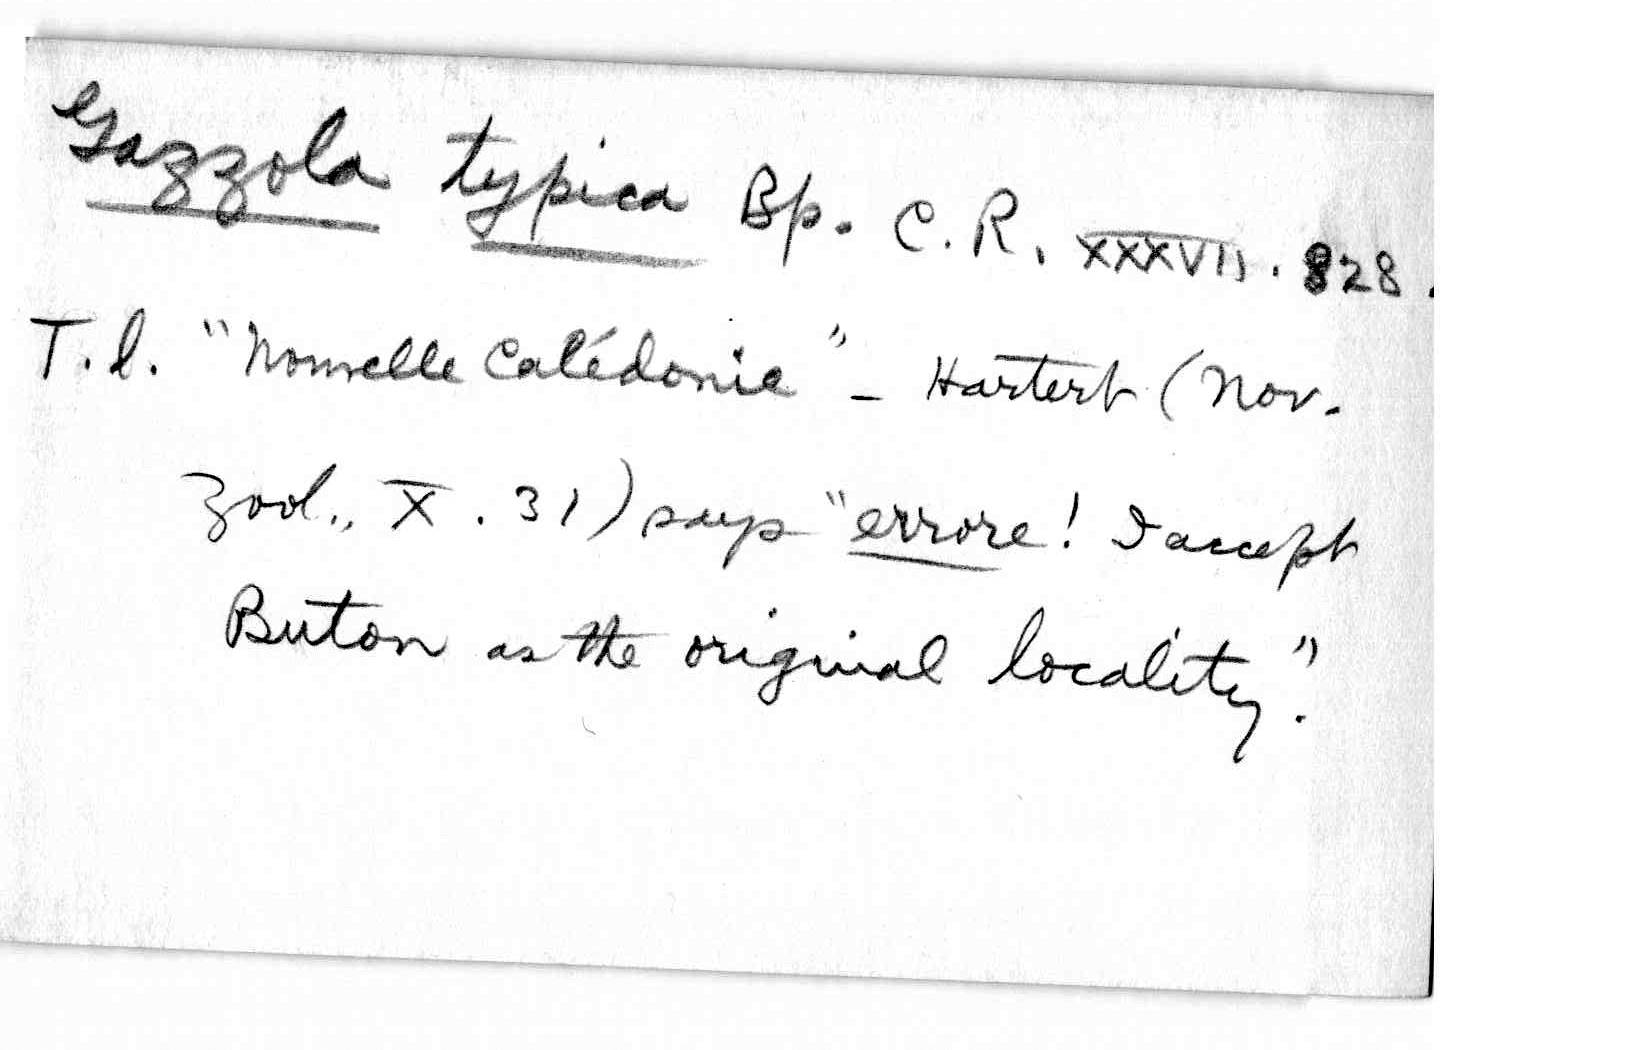 Gazzola typica Bp. C.R. XXXVII. 828.
T.l. "Nouvelle Calédonie" – Hartert (Nov.
Zool., X. 31) says "errore! I accept
Buton as the original locality".